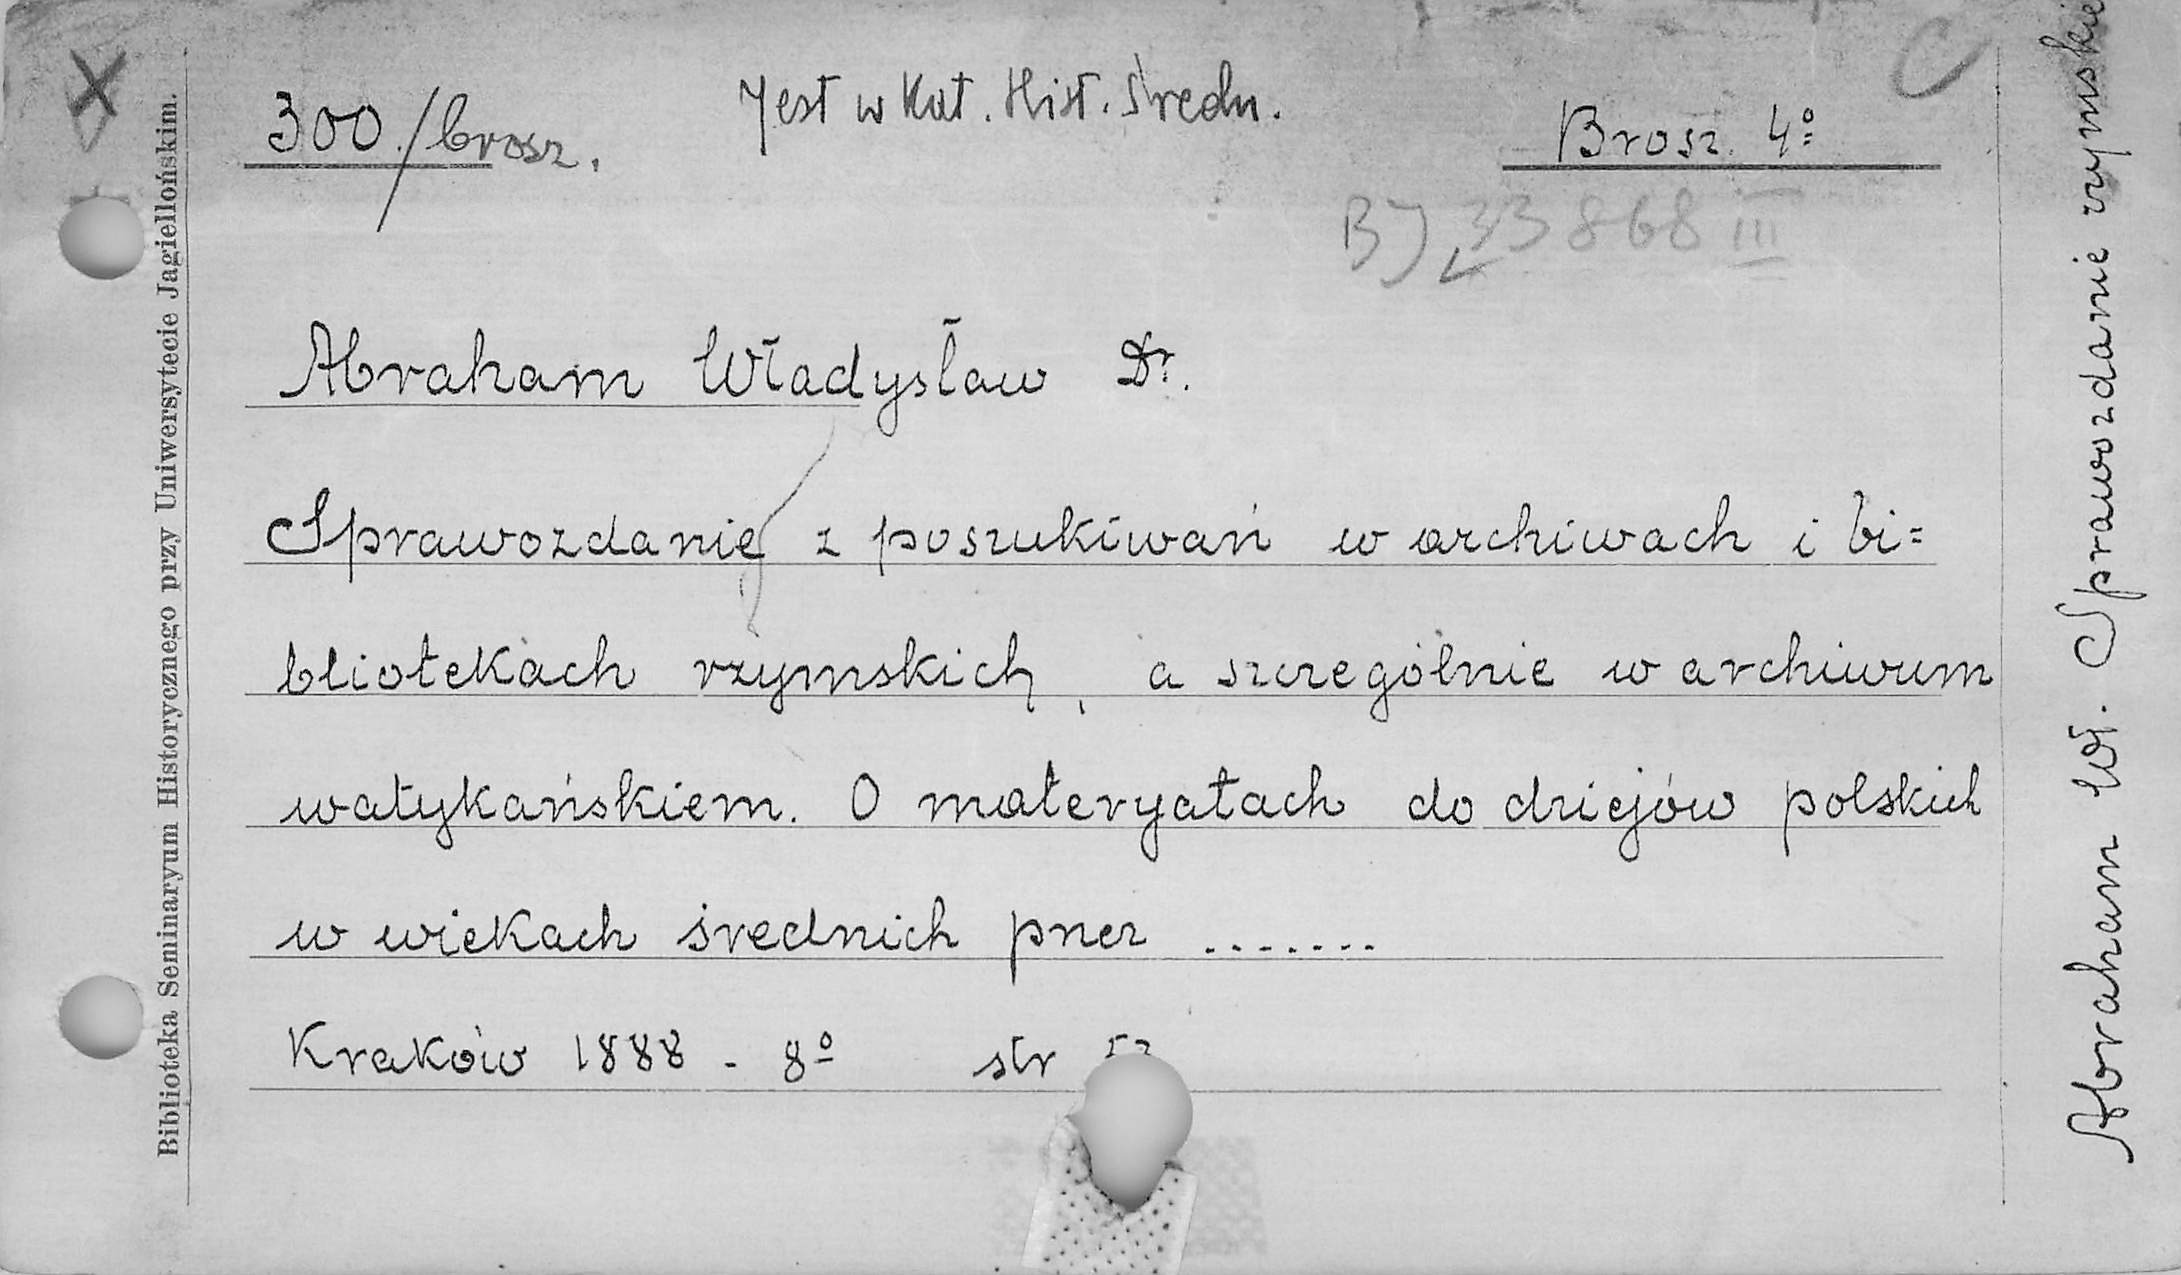 300/brosz.
Jest w Kat. Hist. Średn.
Brosz. 4º
C
B) 33868 III
Abraham Władysław Dr.
Sprawozdanie z poszukiwań w archiwach i bi=
bliotekach rzymskich, a szczególnie w archiwum
watykańskiem. O materyałach do dziejów polskich
w wiekach średnich przez .......
Kraków 1888 - 8º str
Biblioteka Seminaryum Historycznego przy Uniwersytecie Jagiellońskim.
Abraham Wł. Sprawozdanie rzymskie